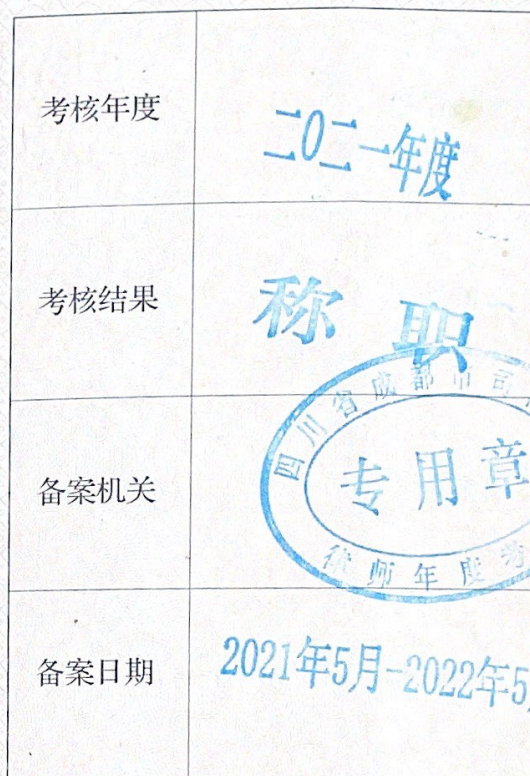 考核年度
二0二一年度
考核结果
称职
四川省成都市司
专用章
律师年度考
备案机关
备案日期
2021年5月-2022年5